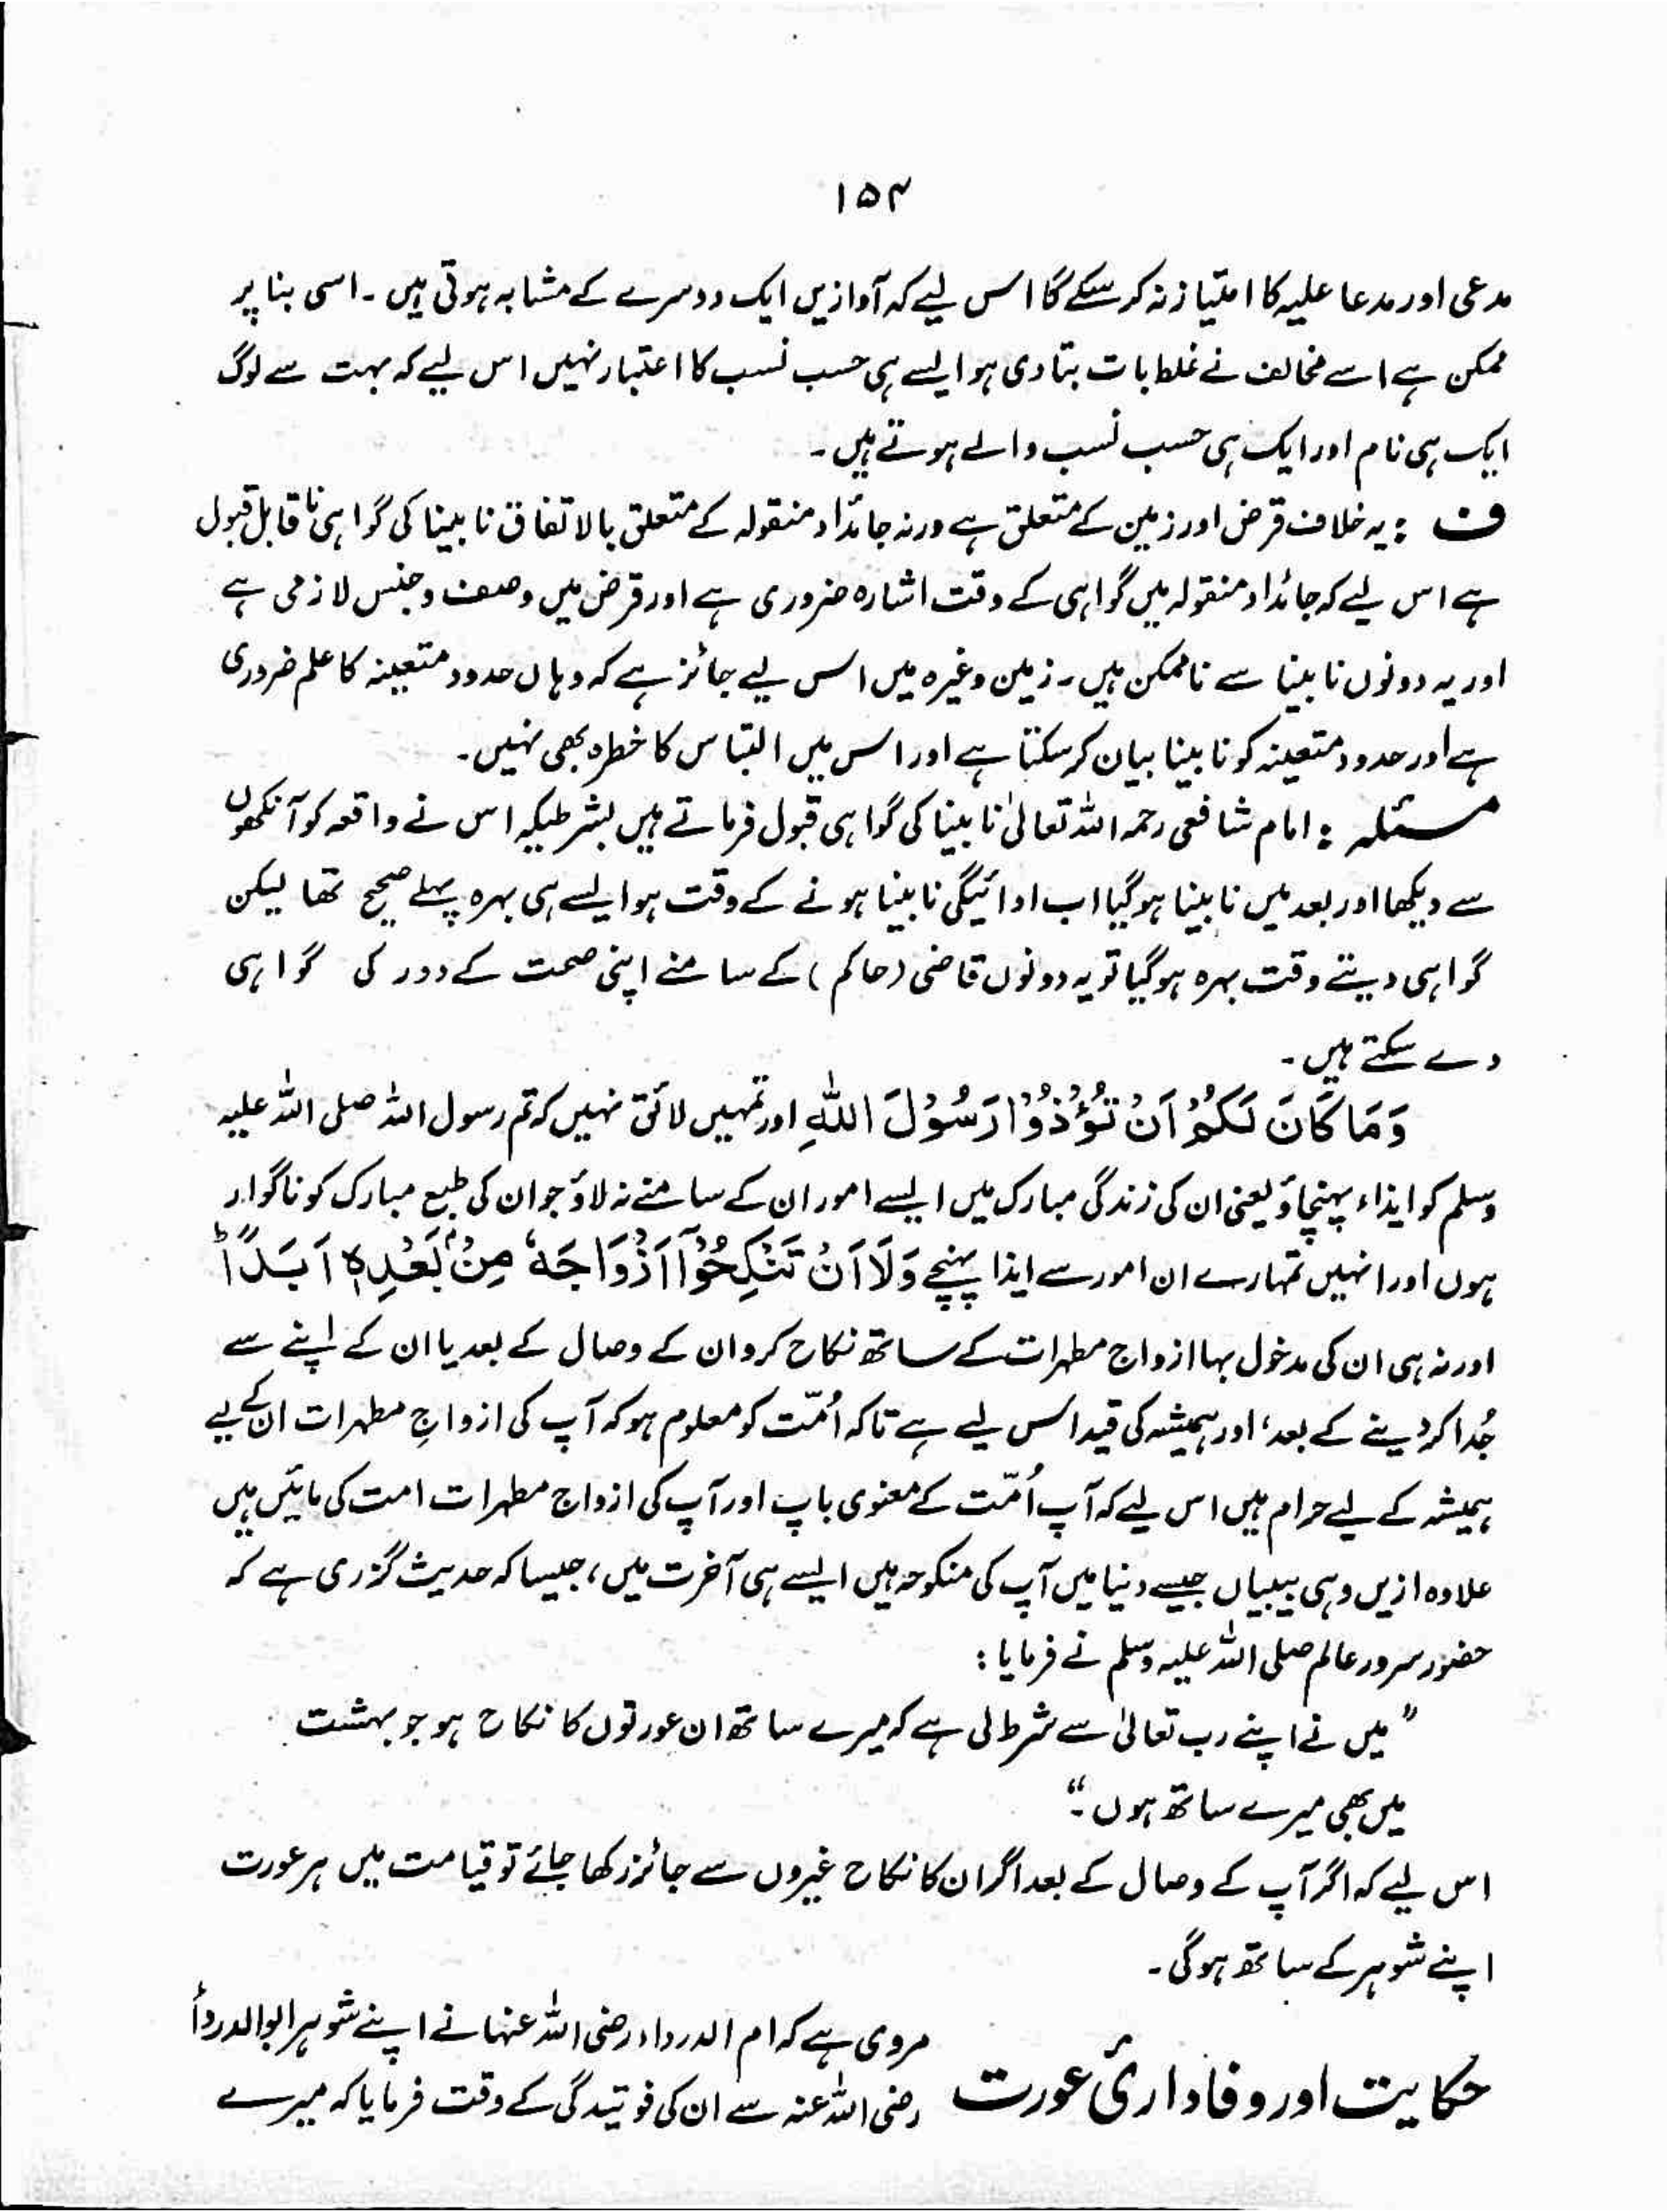 ۱۵۴
مدعی اور مدعا علیہ کا امتیاز نہ کر سکے گا اس لیے کہ آوازیں ایک دوسرے کے مشابہ ہوتی ہیں ۔ اسی بنا پر
ممکن ہے اسے مخالف نے غلط بات بتا دی ہو ایسے ہی حسب نسب کا اعتبار نہیں اس لیے کہ بہت سے لوگ
ایک ہی نام اور ایک ہی حسب نسب والے ہوتے ہیں ۔
ف : یہ خلاف قرض اور زمین کے متعلق ہے ورنہ جائداد منقولہ کے متعلق بالاتفاق نابینا کی گواہی ناقابل قبول
ہے اس لیے کہ جائداد منقولہ میں گواہی کے وقت اشارہ ضروری ہے اور قرض میں وصف و جنس لازمی ہے
اور یہ دونوں نابینا سے ناممکن ہیں ۔ زمین وغیرہ میں اس لیے جائز ہے کہ وہاں حدود متعینہ کا علم ضروری
ہے اور حدود متعینہ کو نابینا بیان کر سکتا ہے اور اس میں التباس کا خطرہ بھی نہیں ۔
مسئلہ : امام شافعی رحمہ اللہ تعالیٰ نابینا کی گواہی قبول فرماتے ہیں بشرطیکہ اس نے واقعہ کو آنکھوں
سے دیکھا اور بعد میں نابینا ہوگیا اب ادائیگی نابینا ہونے کے وقت ہو ایسے ہی بہرہ پہلے صحیح تھا لیکن
گواہی دیتے وقت بہرہ ہوگیا تو یہ دونوں قاضی (حاکم) کے سامنے اپنی صحت کے دور کی گواہی
دے سکتے ہیں ۔
وَمَا كَانَ لَكُمْ اَنْ تُؤْذُوْا رَسُوْلَ اللّٰهِ اور تمہیں لائق نہیں کہ تم رسول اللہ صلی اللہ علیہ
وسلم کو ایذاء پہنچاؤ یعنی ان کی زندگی مبارک میں ایسے امور ان کے سامنے نہ لاؤ جو ان کی طبع مبارک کو ناگوار
ہوں اور انہیں تمہارے ان امور سے ایذا پہنچے وَلَا اَنْ تَنْكِحُوْٓا اَزْوَاجَهٗ مِنْۢ بَعْدِهٖٓ اَبَدًا ؕ
اور نہ ہی ان کی مدخول بہا ازواج مطہرات کے ساتھ نکاح کرو ان کے وصال کے بعد یا ان کے اپنے سے
جُدا کر دینے کے بعد، اور ہمیشہ کی قید اس لیے ہے تاکہ اُمّت کو معلوم ہو کہ آپ کی ازواجِ مطہرات ان کے لیے
ہمیشہ کے لیے حرام ہیں اس لیے کہ آپ اُمّت کے معنوی باپ اور آپ کی ازواج مطہرات امت کی مائیں ہیں
علاوہ ازیں وہی بیبیاں جیسے دنیا میں آپ کی منکوحہ ہیں ایسے ہی آخرت میں، جیسا کہ حدیث گزری ہے کہ
حضور سرور عالم صلی اللہ علیہ وسلم نے فرمایا :
” میں نے اپنے رب تعالیٰ سے شرط لی ہے کہ میرے ساتھ ان عورتوں کا نکاح ہو جو بہشت
میں بھی میرے ساتھ ہوں ۔“
اس لیے کہ اگر آپ کے وصال کے بعد اگر ان کا نکاح غیروں سے جائز رکھا جائے تو قیامت میں ہر عورت
اپنے شوہر کے ساتھ ہوگی ۔
حکایت اور وفاداریٔ عورت
مروی ہے کہ ام الدرداء رضی اللہ عنہا نے اپنے شوہر ابوالدرداء
رضی اللہ عنہ سے ان کی فوتیدگی کے وقت فرمایا کہ میرے